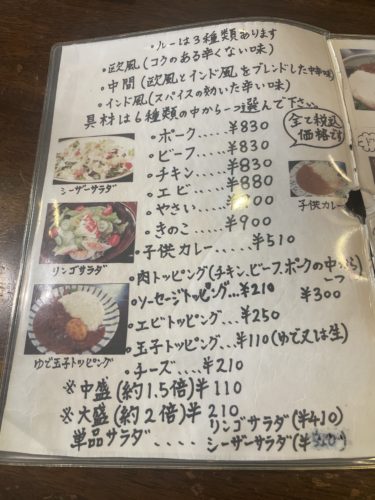 ・ルーは3種類あります
・欧風(コクのある辛くない味)
・中間(欧風とインド風をブレンドした中辛味)
・インド風(スパイスの効いた辛い味)
具材は6種類の中から一つ選んで下さい。
全て税込価格です
・ポーク....¥830
・ビーフ....¥830
・チキン....¥830
・エビ....¥880
・やさい....00
・きのこ....¥900
・子供カレー....¥510
シーザーサラダ
子供カレー
リンゴサラダ
ゆで玉子トッピング
・肉トッピング(チキン、ビーフ、ポークの中から一つ)
¥300
・ソーセージトッピング...¥210
・エビトッピング...¥250
・玉子トッピング...¥110(ゆで又は生)
・チーズ...¥210
※中盛(約1.5倍)¥110
※大盛(約2倍)¥210
単品サラダ....リンゴサラダ(¥410)
シーザーサラダ(¥